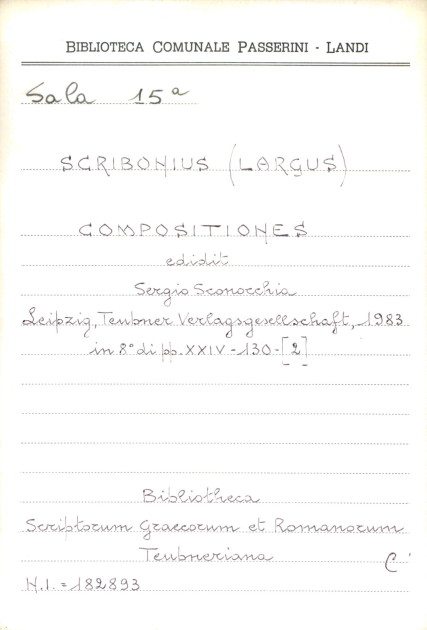 BIBLIOTECA COMUNALE PASSERINI - LANDI
Sala 15ª
SCRIBONIUS (LARGUS)
COMPOSITIONES
edidit
Sergio Sconocchia
Leipzig, Teubner Verlagsgesellschaft, 1983
in 8° di pp. XXIV-130-[2]
Bibliotheca
Scriptorum Graecorum et Romanorum
Teubneriana
C
N.I. = 182893